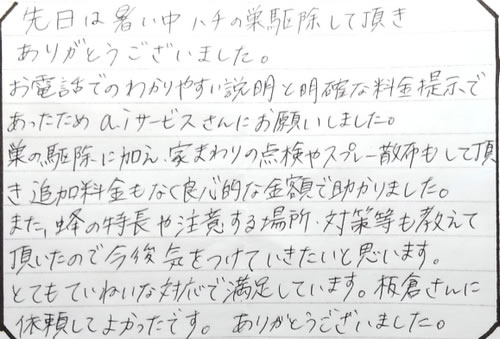 先日は暑い中ハチの巣駆除して頂き
ありがとうございました。
お電話でのわかりやすい説明と明確な料金提示で
あったためa.iサービスさんにお願いしました。
巣の駆除に加え、家まわりの点検やスプレー散布もして頂
き追加料金もなく良心的な金額で助かりました。
また、蜂の特長や注意する場所・対策等も教えて
頂いたので今後気をつけていきたいと思います。
とてもていねいな対応で満足しています。板倉さんに
依頼してよかったです。ありがとうございました。